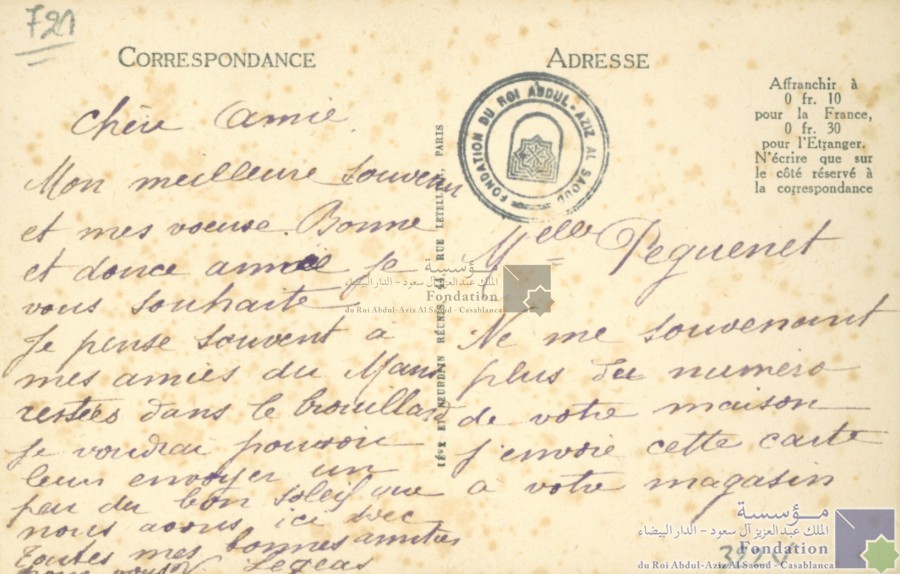 721
CORRESPONDANCE
ADRESSE
Affranchir à
0 fr. 10
pour la France,
0 fr. 30
pour l'Etranger.
N'écrire que sur
le côté réservé à
la correspondance
FONDATION DU ROI ABDUL-AZIZ AL SAOUD
Chère Amie
Mon meilleure souvenir
et mes voeuse. Bonne
et douce année je
vous souhaite
Je pense souvent à
mes amies du Mans
restées dans le brouillard
Je voudrai pouvoir
leur envoyer un
peu du bon soleil que
nous avons ici avec
toutes mes bonnes amitiés
RÉUNIS, 44, RUE LETELLIER, PARIS
Melle Peguenet
Ne me souvenant
plus du numéro
de votre maison
j'envoie cette carte
a votre magasin
مؤسسة
الملك عبد العزيز آل سعود - الدار البيضاء
Fondation
du Roi Abdul-Aziz Al Saoud - Casablanca
مؤسسة
الملك عبد العزيز آل سعود - الدار البيضاء
Fondation
du Roi Abdul-Aziz Al Saoud - Casablanca